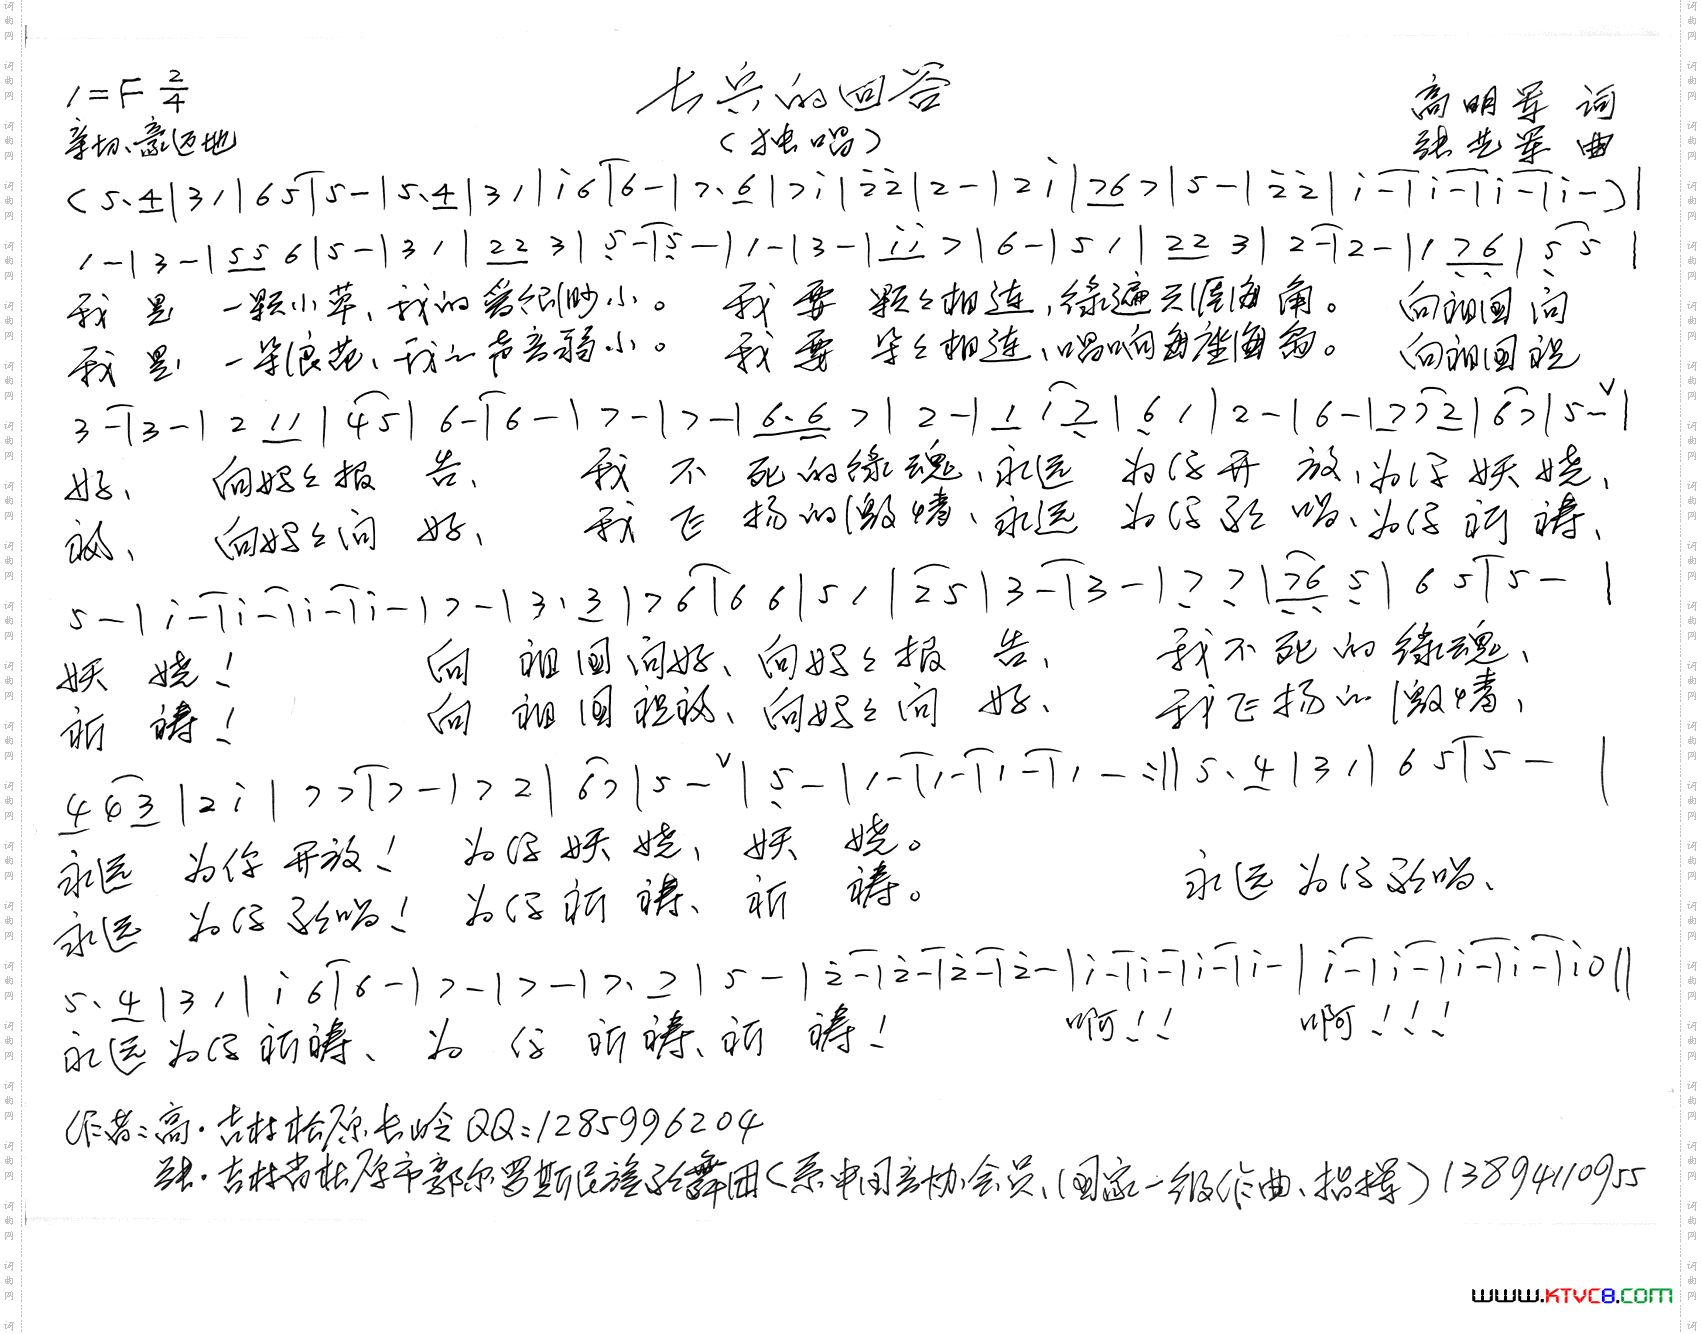 1=F 2/4
士兵的回答
高明军 词
亲切、豪迈地
(独唱)
张先军 曲
(5·4|31|65|5-|5·4|31|i6|6-|7·6|7i|22|2-|2i|767|5-|22|i-|i-|i-|i-)|
1-|3-|556|5-|31|223|5-|5-|1-|3-|ii7|6-|51|223|2-|2-|176|55|
我是 一颗小草、我的 很渺小。 我要 颗々相连,绿遍天涯海角。 向祖国问
我是 一朵浪花、我的声音弱小。 我要 朵々相连、唱响 海角。 向祖国祝
3-|3-|211|45|6-|6-|7-|7-|6·67|2-|1i2|61|2-|6-|772|67|5-|
好、 向妈々报 告、 我不死的绿魂、永远 为你开放、为你妖娆、
福、 向妈々问好、 我飞扬的激情、永远 为你歌唱、为你祈祷、
5-|i-|i-|i-|i-|7-|3·3|76|66|51|25|3-|3-|77|765|65|5-|
妖娆! 向祖国问好、向妈々报告、 我不死的绿魂、
祈祷! 向祖国祝福、向妈々问好、 我飞扬的激情、
463|2i|77|7-|72|67|5-|5-|1-|1-|1-|1-:||5·4|31|65|5-|
永远 为你开放! 为你妖娆、妖娆。
永远为你歌唱、
永远 为你歌唱! 为你祈祷、祈祷。
5·4|31|i6|6-|7-|7-|7·7|5-|2-|2-|2-|2-|i-|i-|i-|i-|i-|i-|i-|i-|i0||
永远为你祈祷、为你祈祷、祈祷! 啊!! 啊!!!
作者:高·吉林松原长岭QQ:1285996204
张·吉林省松原市郭尔罗斯民族歌舞团(系中国音协会员、国家一级作曲、指挥)13894110955
www.KTVC8.com